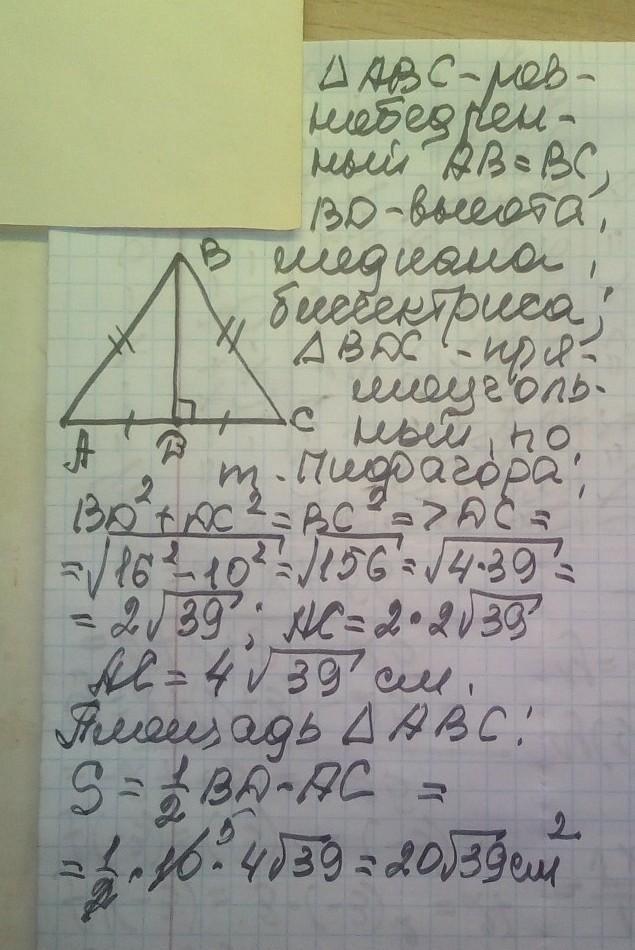 △ABC - рав-
нобедрен-
ный AB = BC,
BD - высота,
медиана,
биссектриса;
△BDC - пря-
моуголь-
ный, по
т. Пифагора:
B
A
D
C
BD² + DC² = BC² => DC =
= √16² - 10² = √156 = √4·39 =
= 2√39; AC = 2·2√39
AC = 4√39 см.
Площадь △ABC:
S = 1/2 BD·AC =
= 1/2 · 10 5 · 4√39 = 20√39 см²